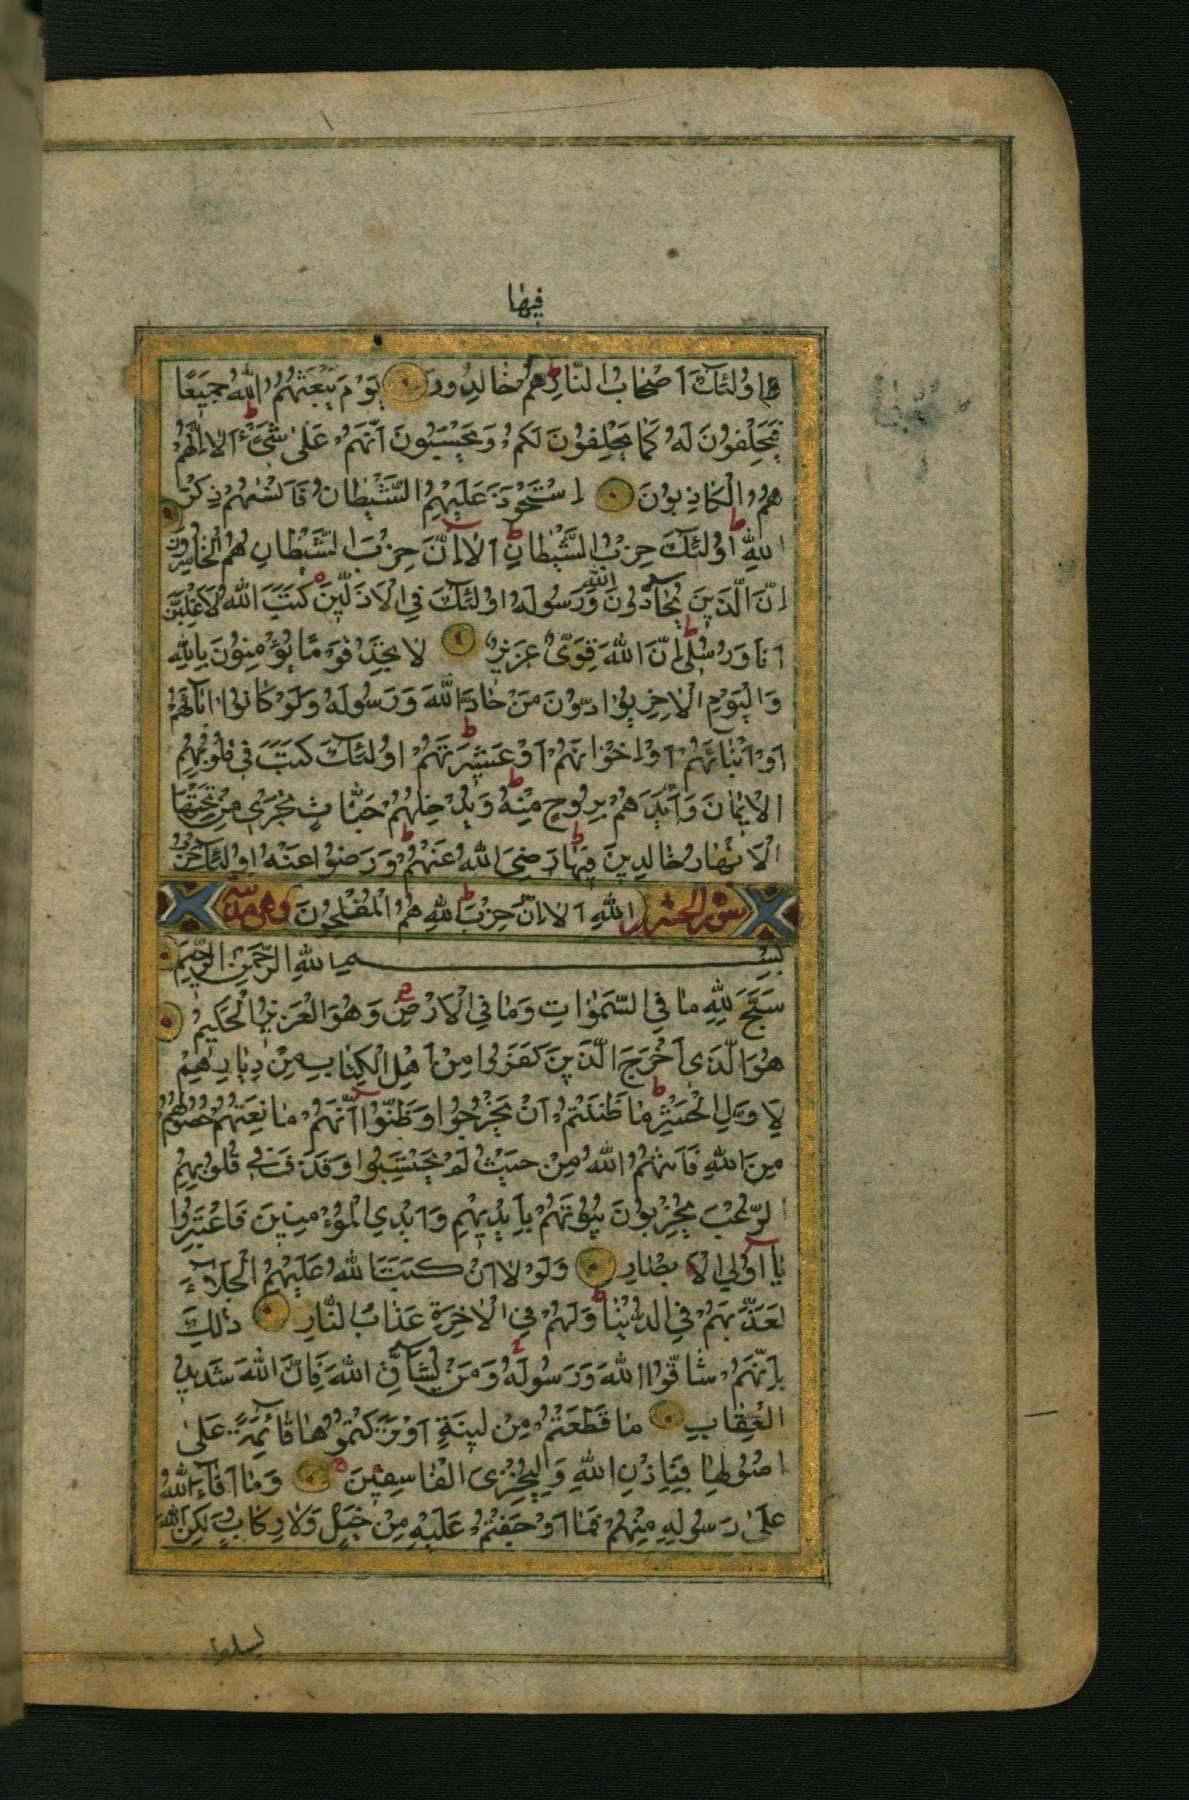 فيها
اولئك اصحاب النار هم خالدون يوم يبعثهم الله جميعا
فيحلفون له كما يحلفون لكم ويحسبون انهم على شيء الا انهم
هم الكاذبون استحوذ عليهم الشيطان فانسهم ذكر
الله اولئك حزب الشيطان الا ان حزب الشيطان هم الخاسرون
ان الذين يحادون الله ورسوله اولئك في الاذلين كتب الله لاغلبن
انا ورسلي ان الله قوي عزيز لا تجد قوما يؤمنون بالله
واليوم الاخر يوادون من حاد الله ورسوله ولو كانوا اباءهم
او ابناءهم او اخوانهم او عشيرتهم اولئك كتب في قلوبهم
الايمان وايدهم بروح منه ويدخلهم جنات تجري من تحتها
الانهار خالدين فيها رضي الله عنهم ورضوا عنه اولئك حزب
سورة الحشر الله الا ان حزب الله هم المفلحون وهي مدنية
بسم الله الرحمن الرحيم
سبح لله ما في السموات وما في الارض وهو العزيز الحكيم
هو الذي اخرج الذين كفروا من اهل الكتاب من ديارهم
لاول الحشر ما ظننتم ان يخرجوا وظنوا انهم مانعتهم حصونهم
من الله فاتهم الله من حيث لم يحتسبوا وقذف في قلوبهم
الرعب يخربون بيوتهم بايديهم وايدي المؤمنين فاعتبروا
يا اولي الابصار ولولا ان كتب الله عليهم الجلاء
لعذبهم في الدنيا ولهم في الاخرة عذاب النار ذلك
بانهم شاقوا الله ورسوله ومن يشاق الله فان الله شديد
العقاب ما قطعتم من لينة او تركتموها قائمة على
اصولها فباذن الله وليخزي الفاسقين وما افاء الله
على رسوله منهم فما اوجفتم عليه من خيل ولا ركاب ولكن الله
يسلط